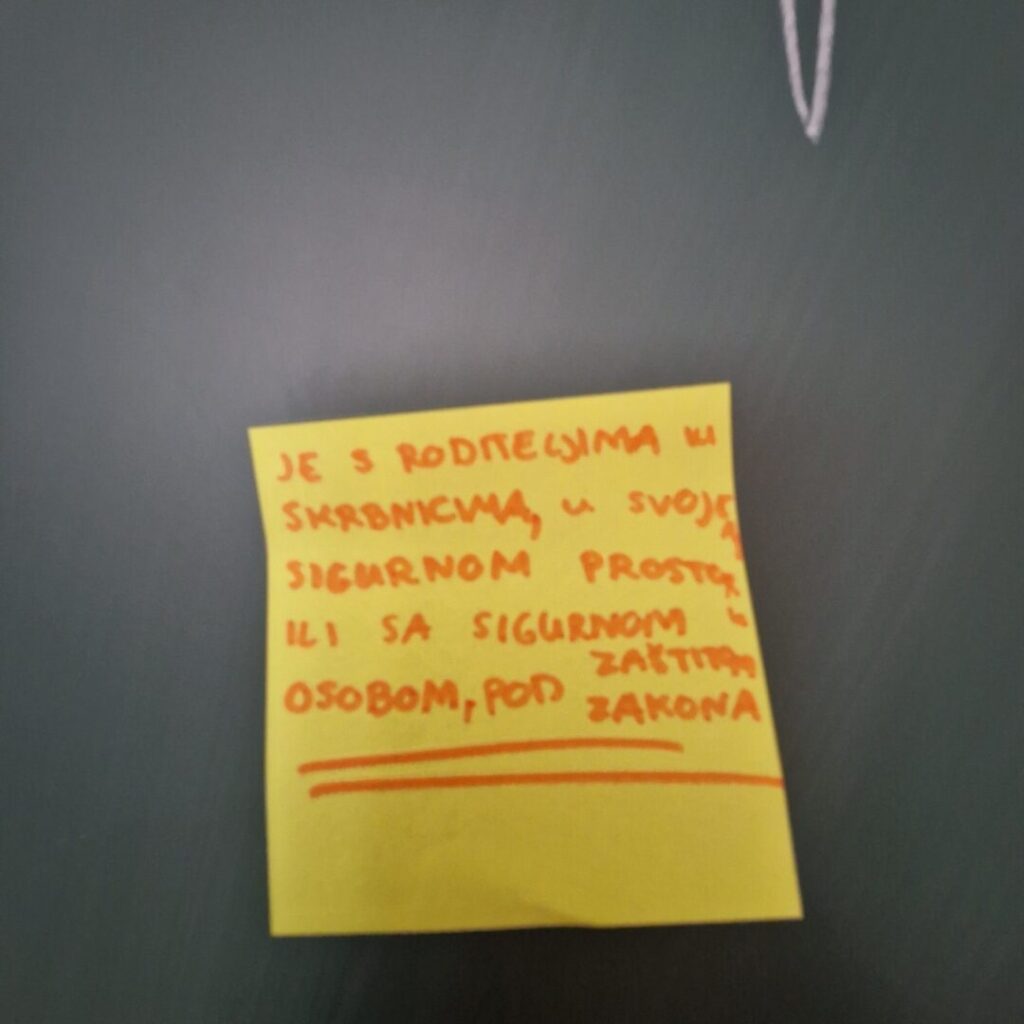 JE S RODITELJIMA ILI
SKRBNICIMA, U SVOJEM
SIGURNOM PROSTORU
ILI SA SIGURNOM
OSOBOM, POD ZAŠTITOM
ZAKONA